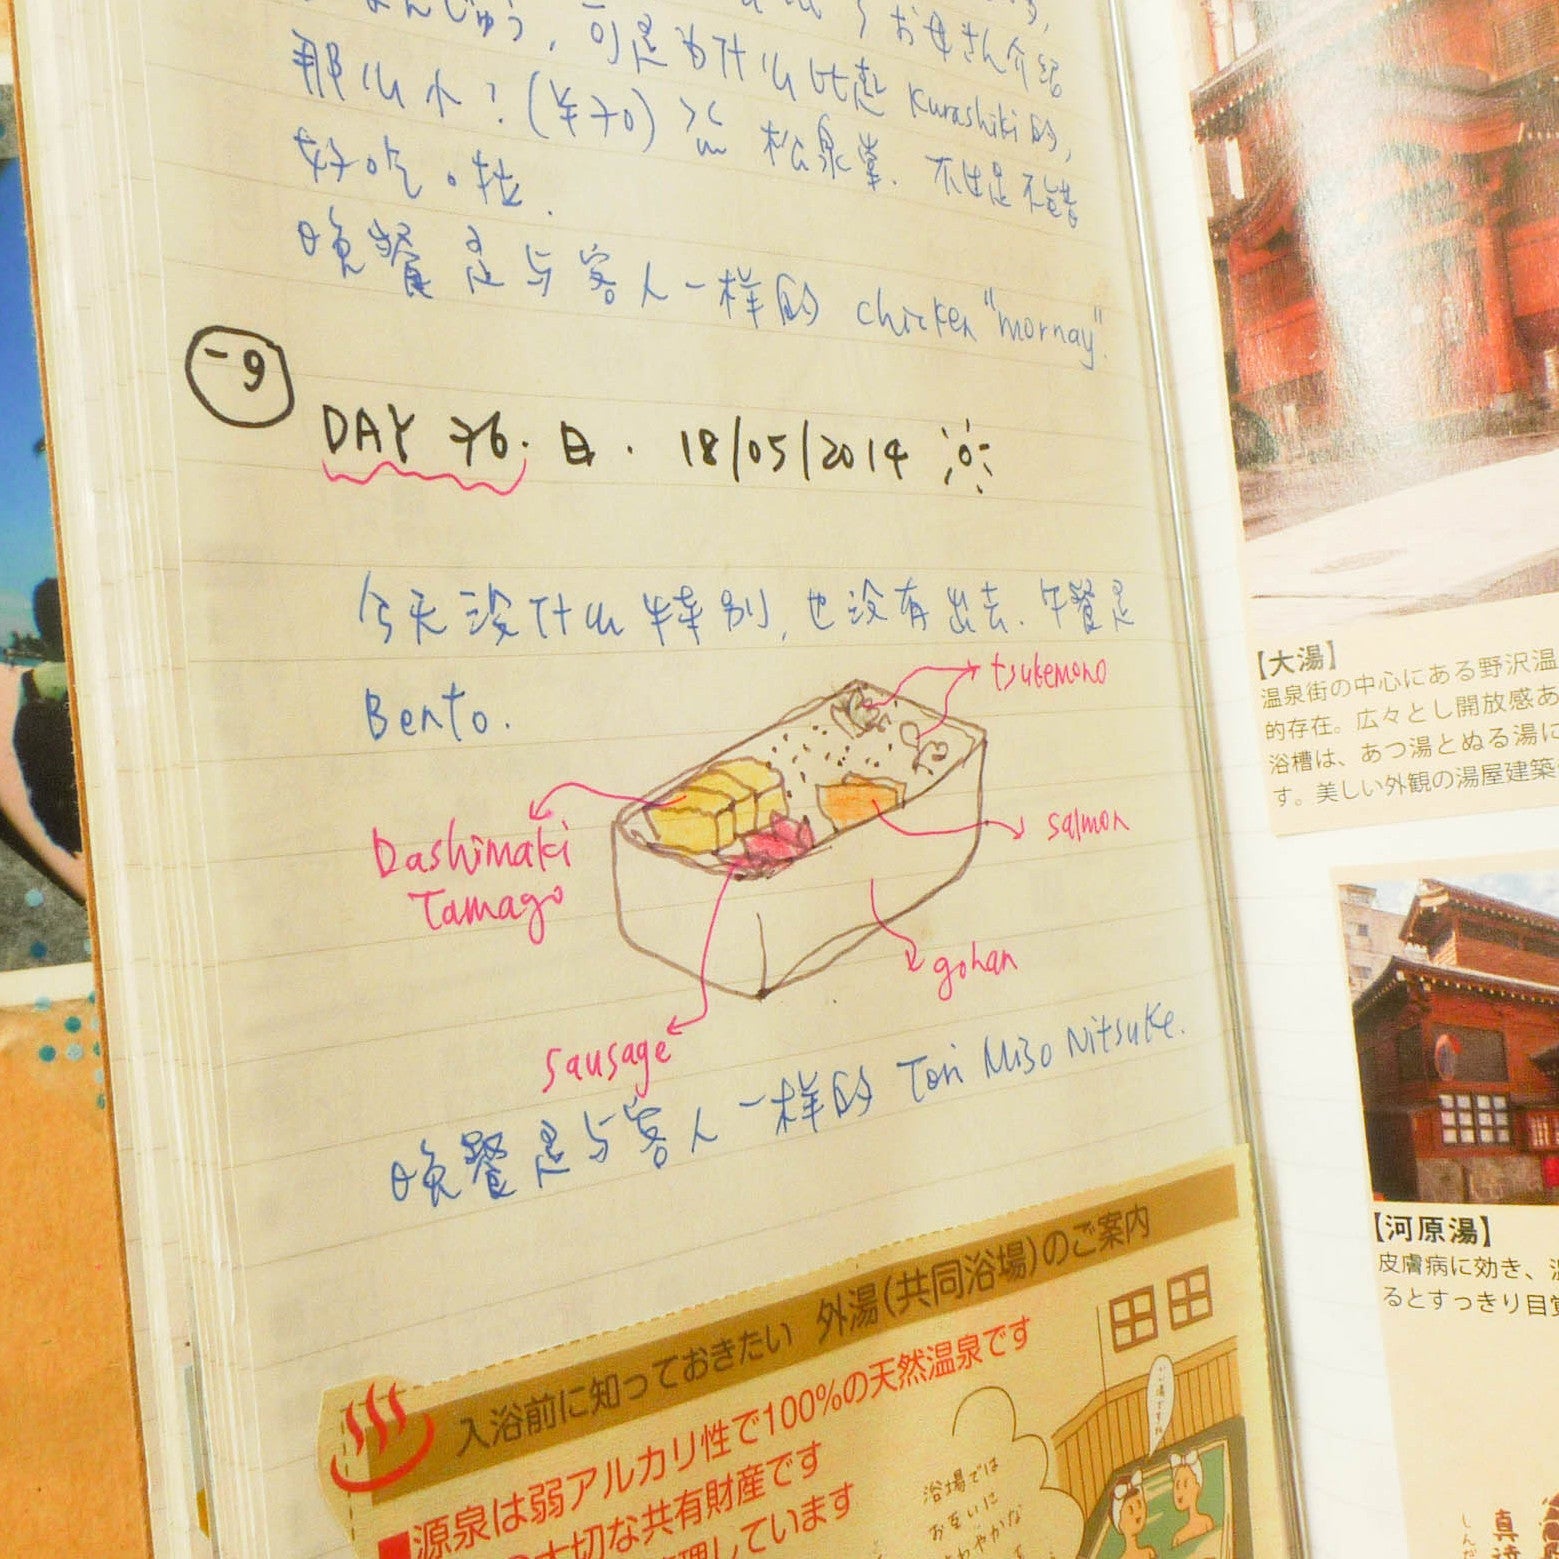 お母さん介绍
じゅう, 可是为什么比起 Kurashiki的,
那么小? (羊羹) 松泉堂. 不出是不错
好吃。啦.
晚餐是与客人一样的 chicken "mornay".
-9
DAY 76. 日. 18/05/2014
今天没什么特别, 也没有出去. 午餐是
Bento.
tsukemono
Dashimaki
Tamago
salmon
gohan
sausage
晚餐是与客人一样的 Tori Miso Nitsuke.
入浴前に知っておきたい 外湯(共同浴場)のご案内
■源泉は弱アルカリ性で100%の天然温泉です
大切な共有財産です
しています
浴場では
お互いに
【大湯】
温泉街の中心にある野沢温
的存在。広々とし開放感あ
浴槽は、あつ湯とぬる湯に
す。美しい外観の湯屋建築
【河原湯】
皮膚病に効き、
るとすっきり目覚
真